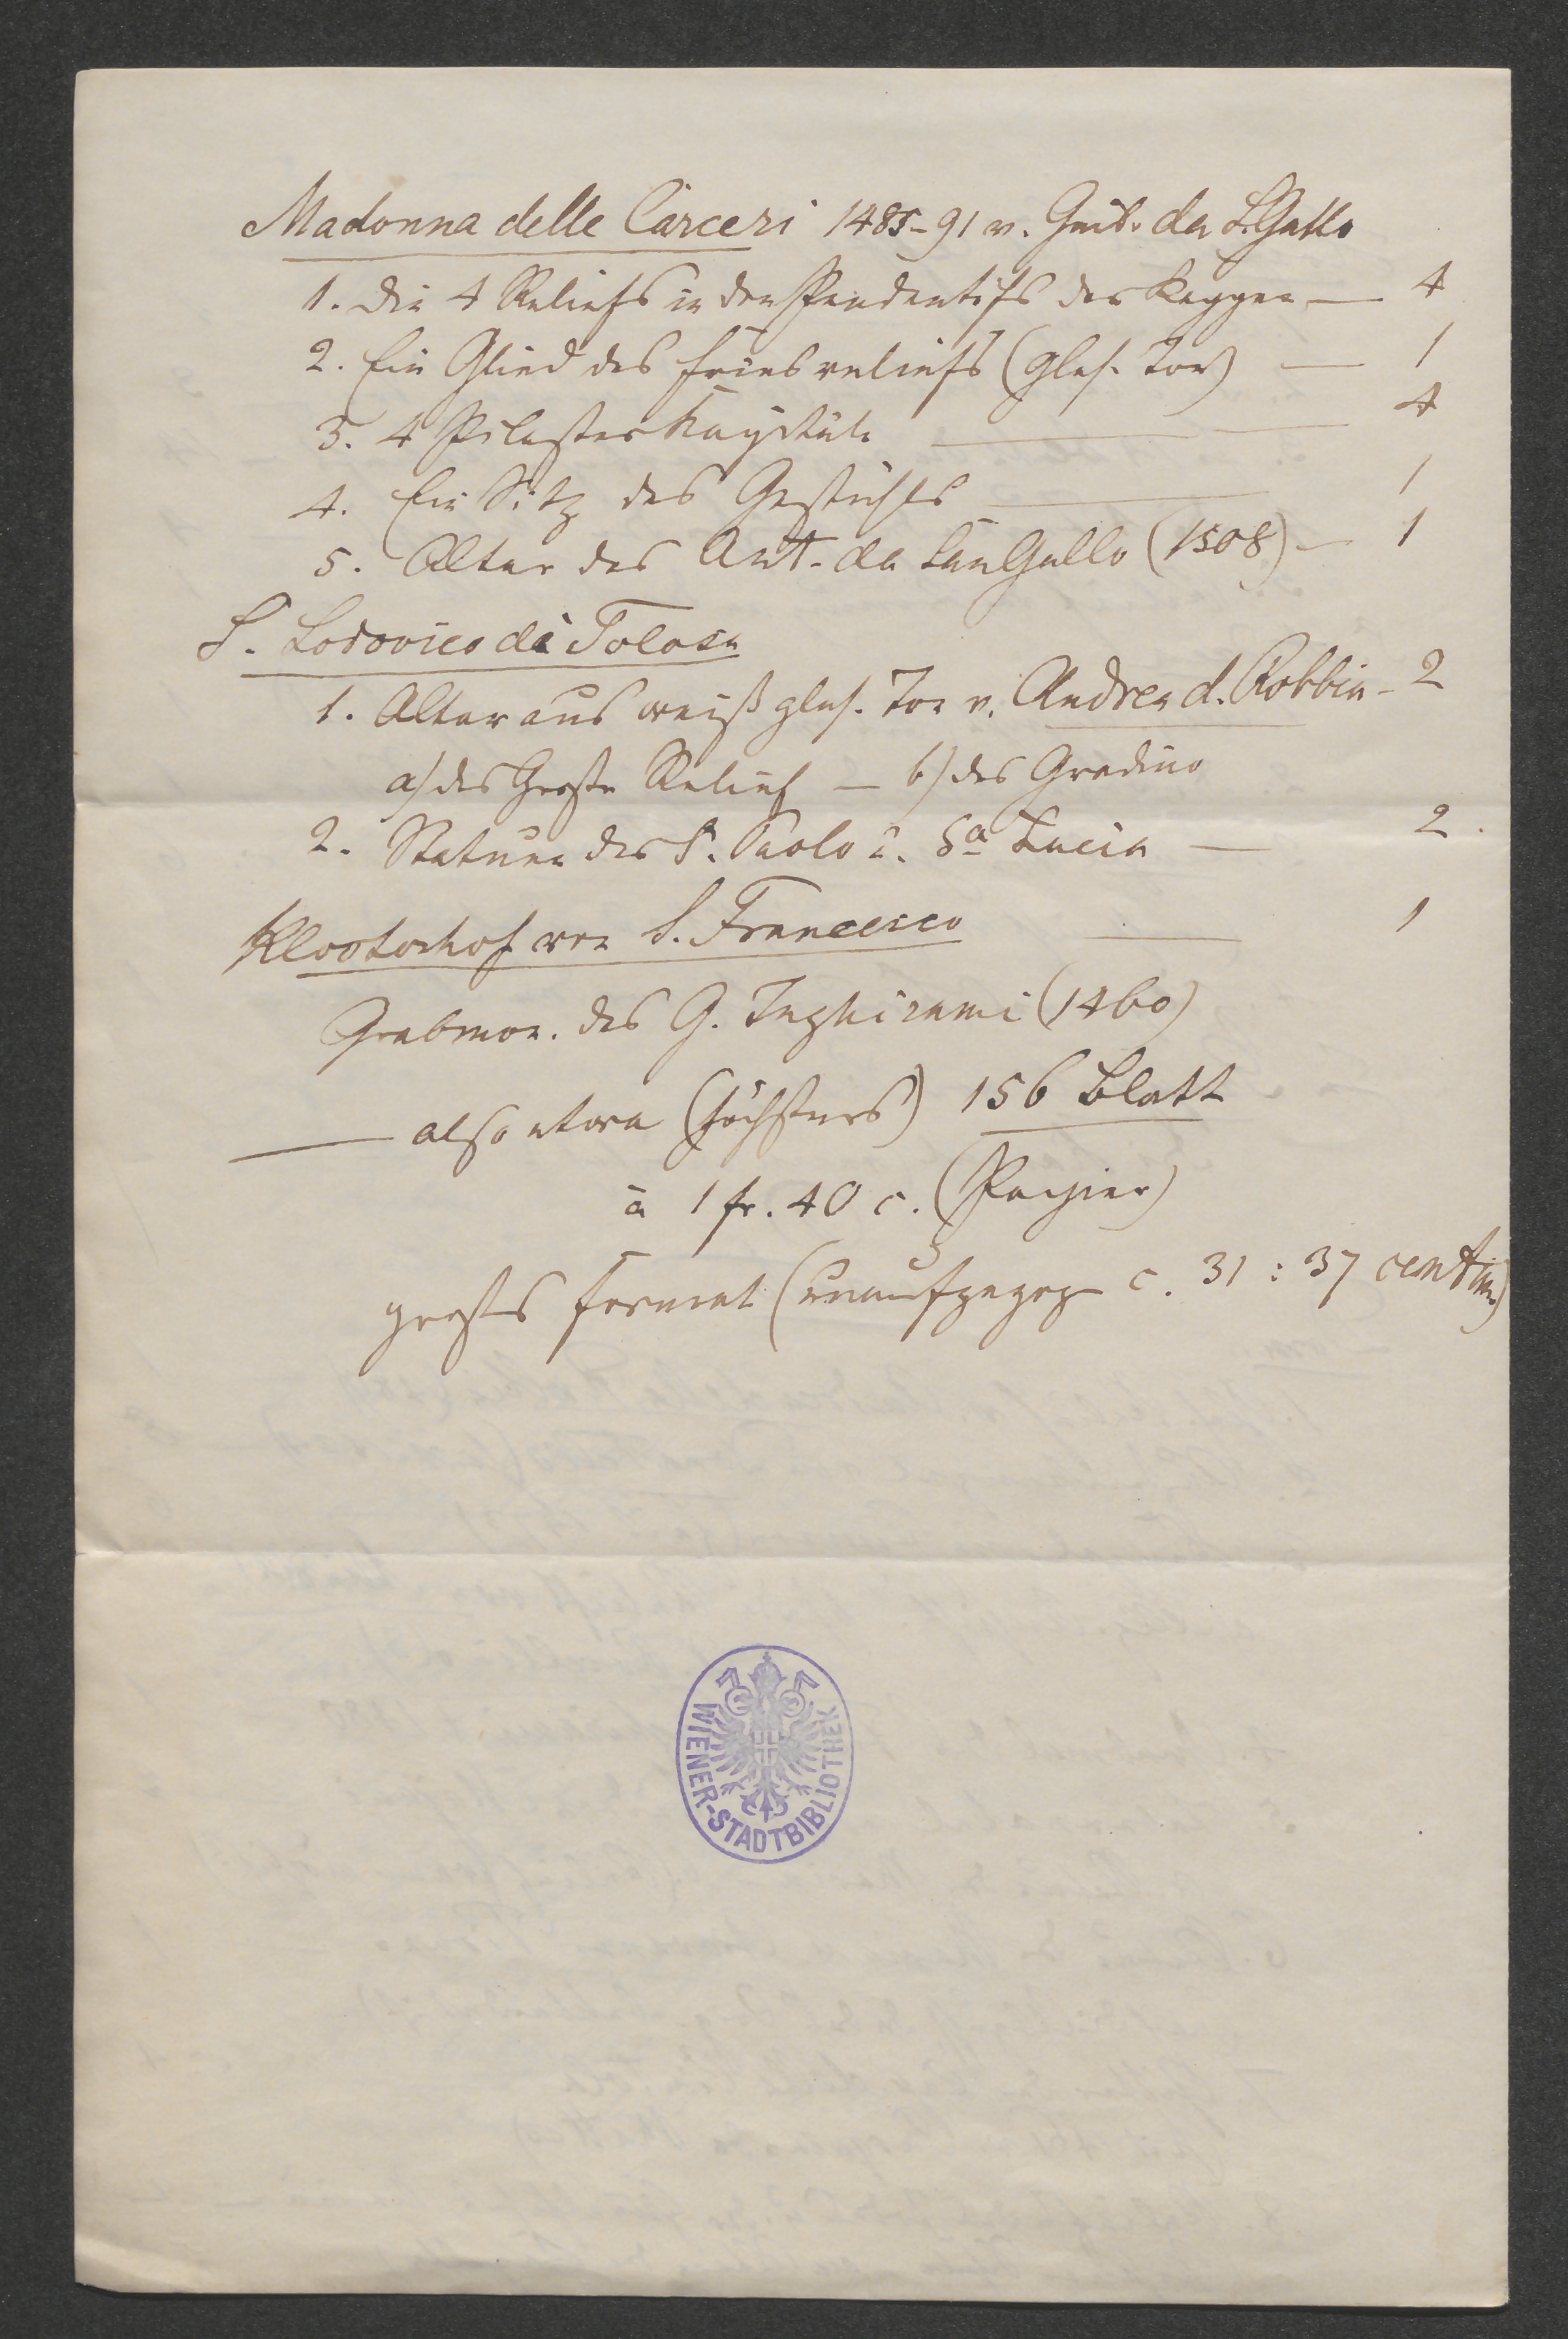 Madonna delle Carceri 1485-91 v. Giul. da S. Gallo
1. Die 4 Reliefs in den Pendentifs der Kuppel — 4
2. Ein Glied des Friesreliefs (glas. Ton) — 1
3. 4 Pilasterkapitäle — 4
4. Ein Sitz des Gestühls — 1
5. Altar des Ant. da San Gallo (1508) — 1
S. Lodovico di Tolosa
1. Altar aus weiß glas. Ton v. Andrea d. Robbia - 2
a) das Große Relief — b) das Gradino
2. Statuen des S. Paolo u. Sa Lucia — 2.
Klosterhof von S. Francesco — 1
Grabmon. des G. Inghirami (1460)
— also etwa (höchstens) 156 Blatt
à 1 fr. 40 c. (Papier)
großes Format (unaufgezog. c. 31 : 37 centim.)
WIENER-STADTBIBLIOTHEK